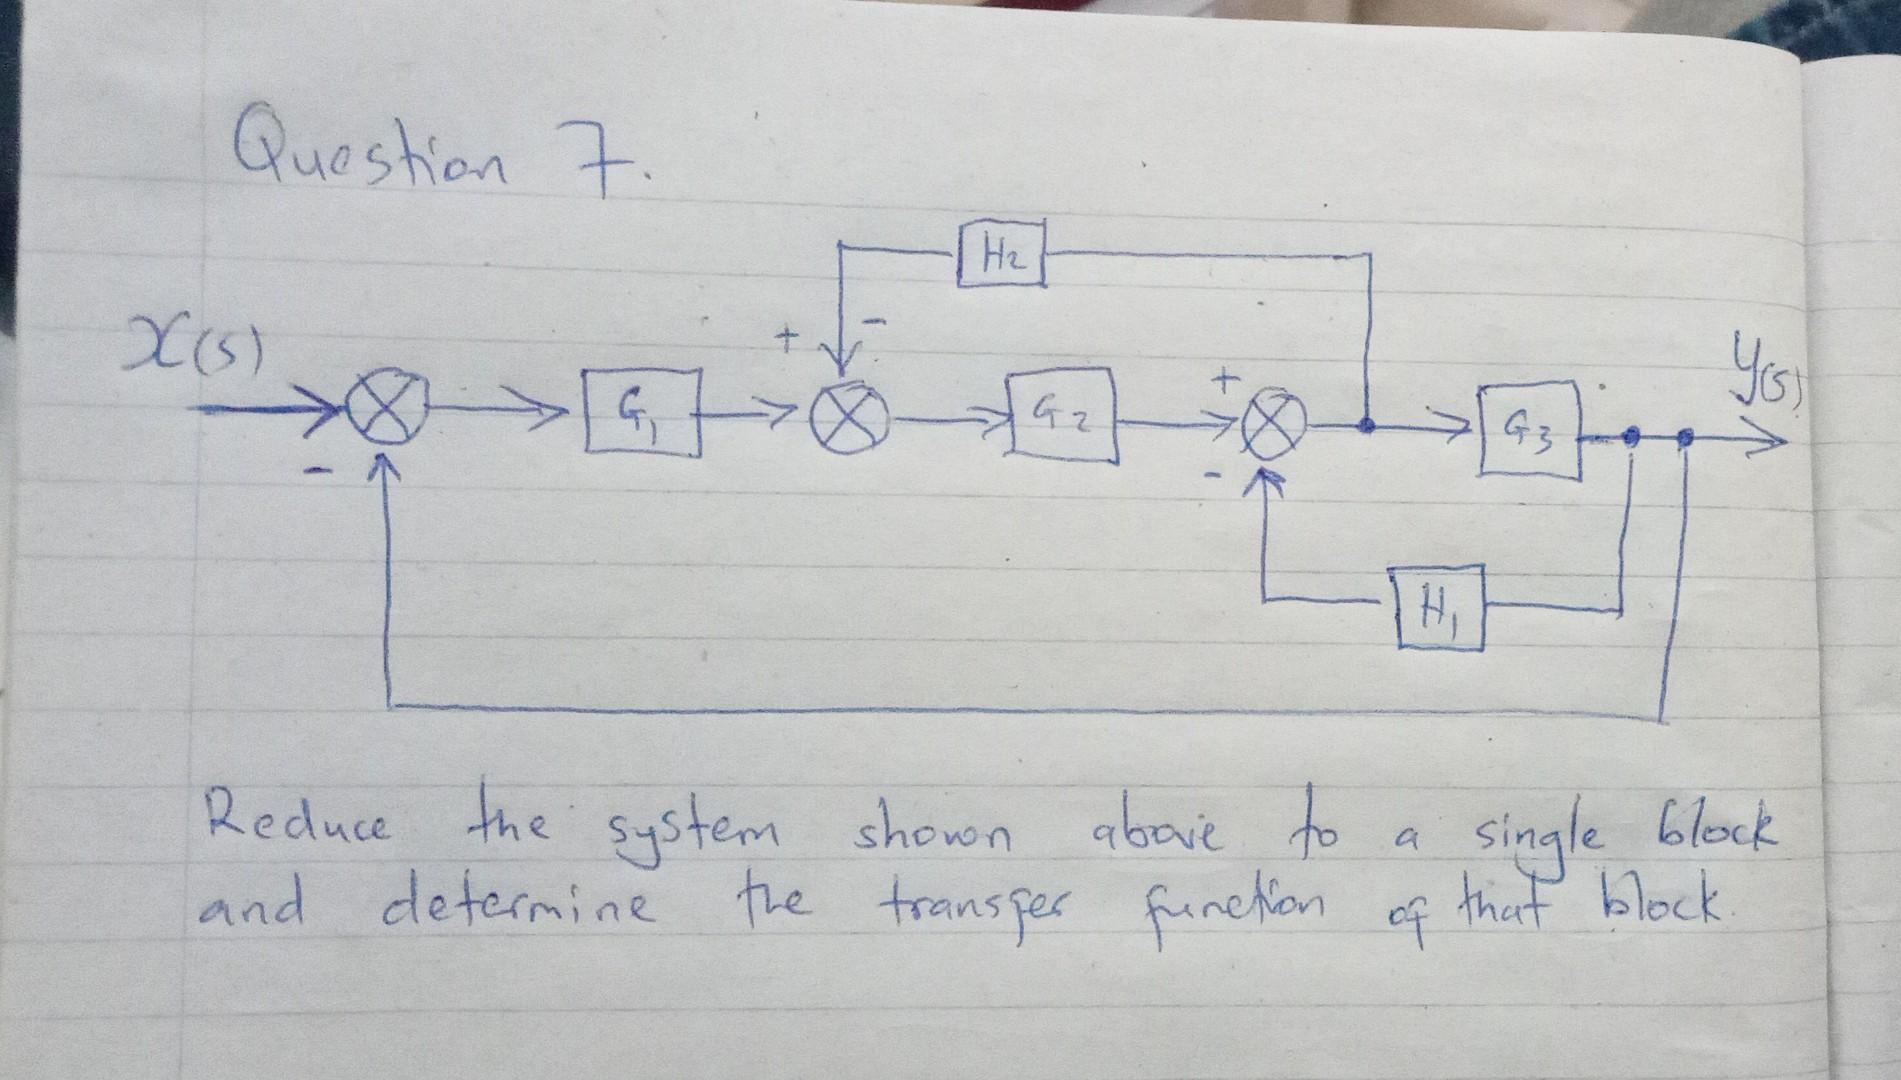 Question 7.
H2
+ -
X(s) G1 G2 + G3 Y(s)
- -
H1
Reduce the system shown above to a single block
and determine the transfer function of that block.